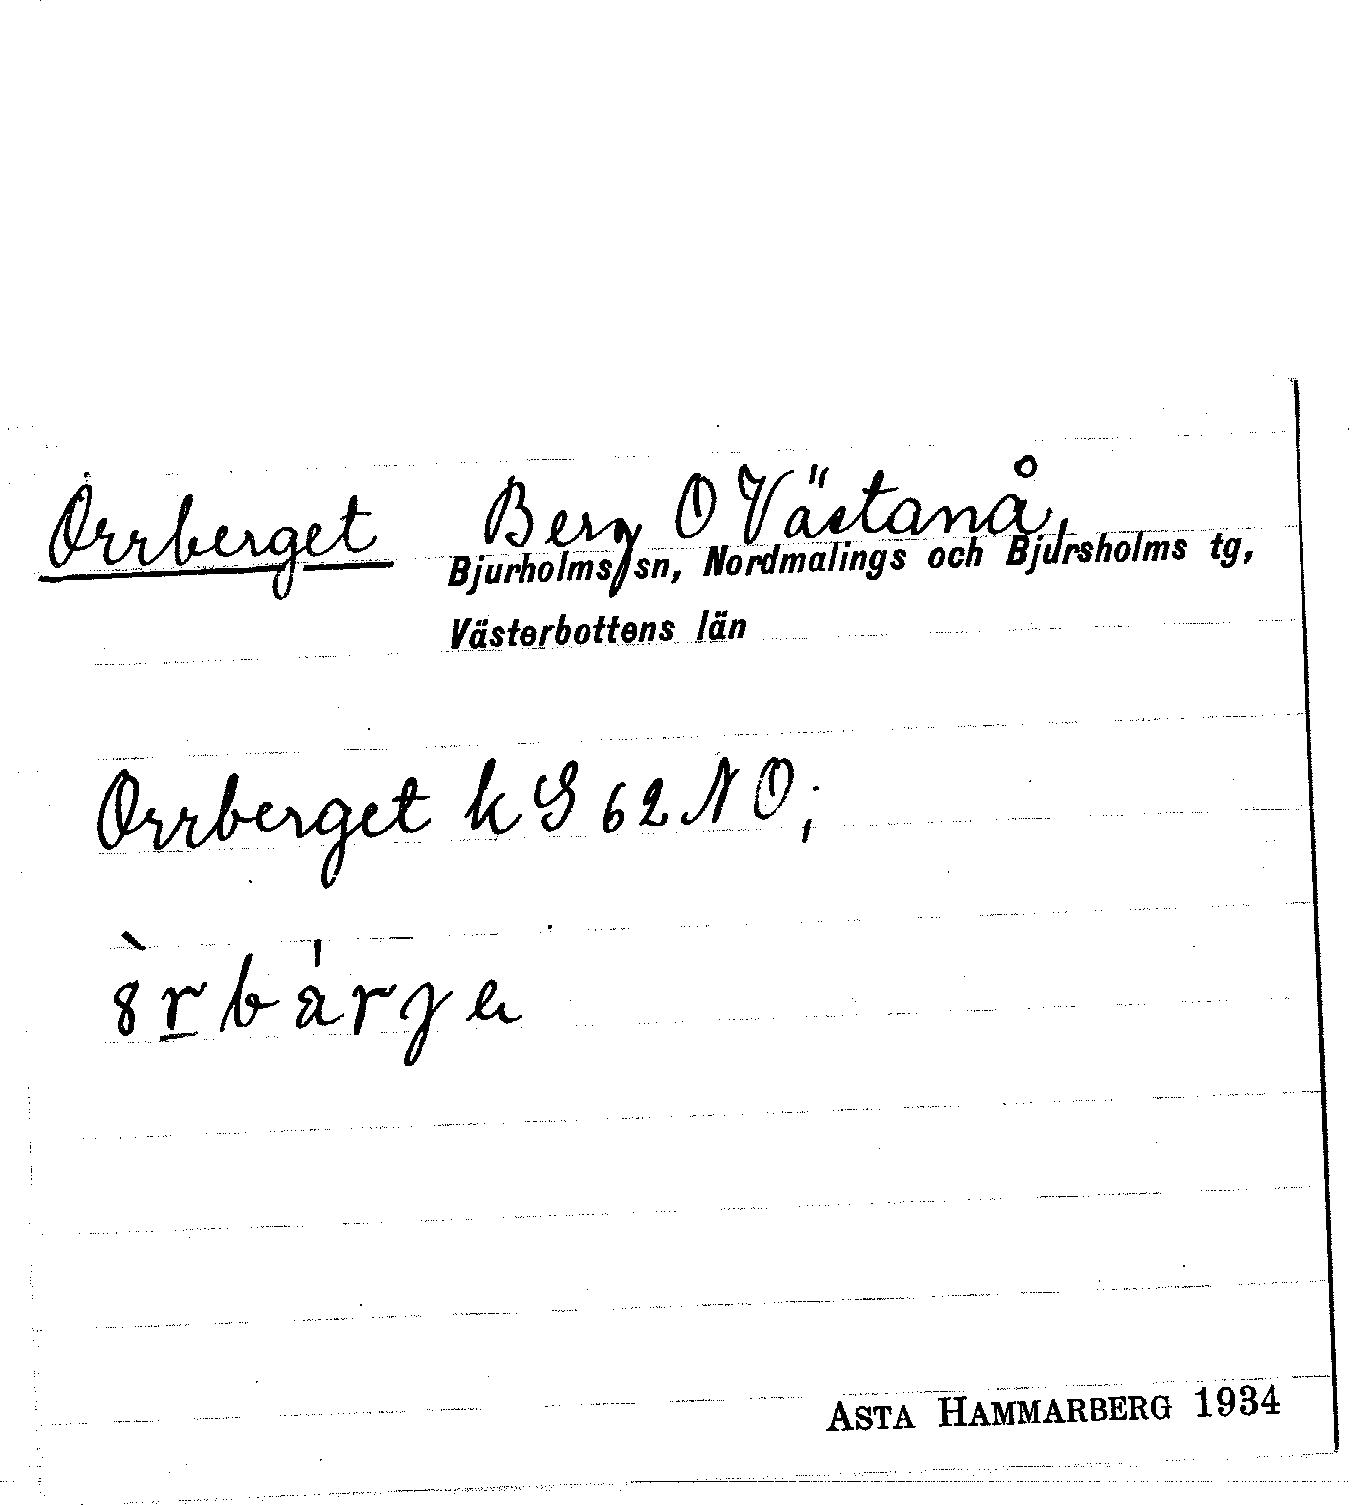 Orrberget Berg O Västanå,
Bjurholms sn, Nordmalings och Bjursholms tg,
Västerbottens län
Orrberget k G 62 NO;
ASTA HAMMARBERG 1934